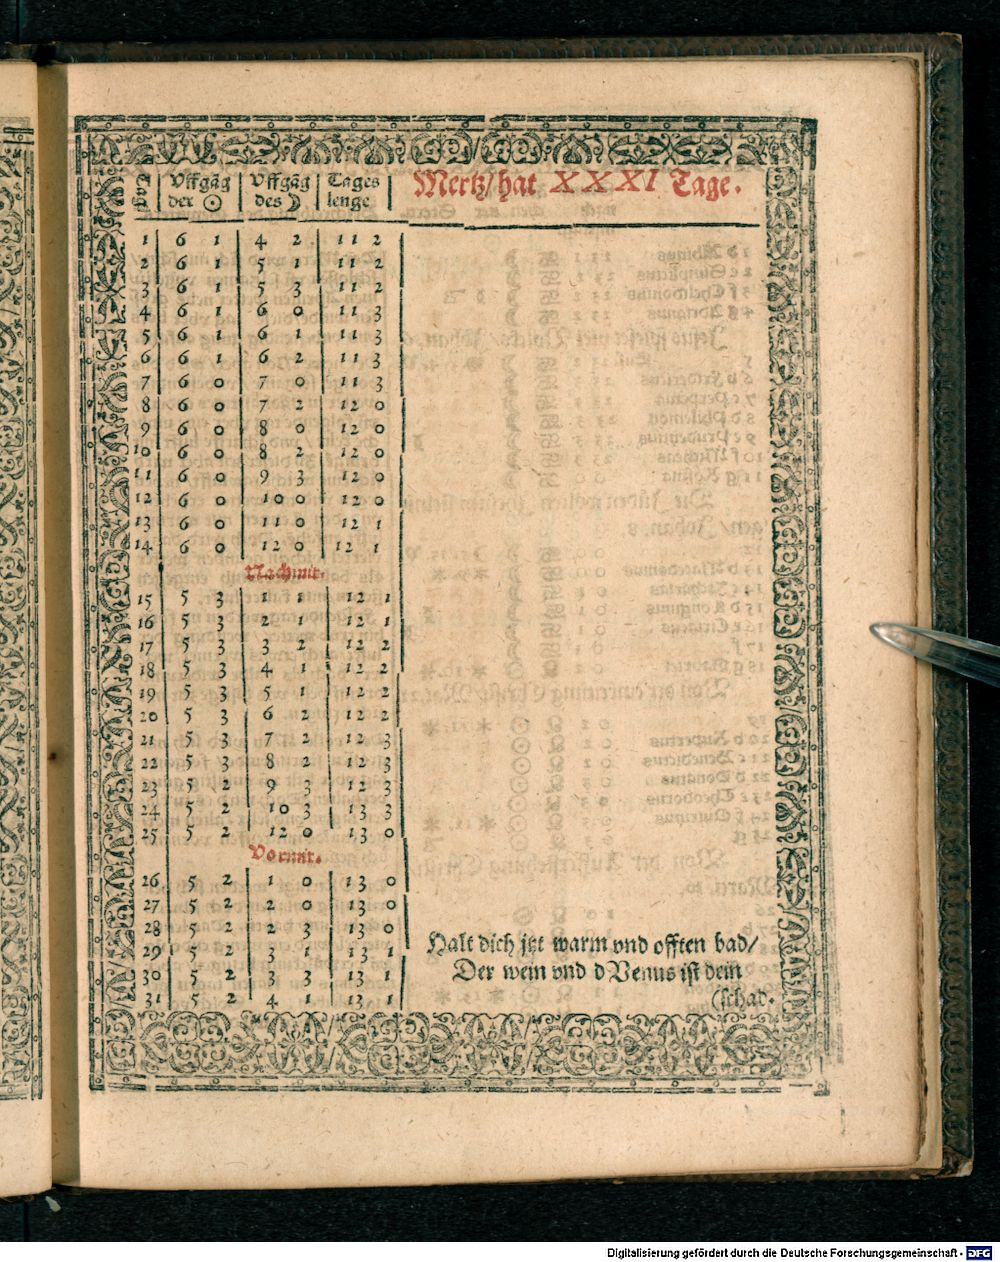 Tag Vffgãg Vffgãg Tages Mertz/hat XXXI Tage.
der ☉ des ☽ lenge
1 6 1 4 2 11 2
2 6 1 5 1 11 2
3 6 1 5 3 11 2
4 6 1 6 0 11 3
5 6 1 6 1 11 3
6 6 1 6 2 11 3
7 6 0 7 0 11 3
8 6 0 7 2 12 0
9 6 0 8 0 12 0
10 6 0 8 2 12 0
11 6 0 9 3 12 0
12 6 0 10 0 12 0
13 6 0 11 0 12 1
14 6 0 12 0 12 1
Nachmit.
15 5 3 1 1 12 1
16 5 3 2 1 12 1
17 5 3 3 2 12 2
18 5 3 4 1 12 2
19 5 3 5 1 12 2
20 5 3 6 2 12 2
21 5 3 7 2 12 3
22 5 3 8 2 12 3
23 5 2 9 3 12 3
24 5 2 10 3 13 3
25 5 2 12 0 13 0
Vormit.
26 5 2 1 0 13 0
27 5 2 2 0 13 0
28 5 2 2 3 13 0
29 5 2 3 1 13 1
30 5 2 3 3 13 1
31 5 2 4 1 13 1
Halt dich jtzt warm vnd offten bad/
Der wein vnd d Venus ist dein
(schad.
Digitalisierung gefördert durch die Deutsche Forschungsgemeinschaft - DFG